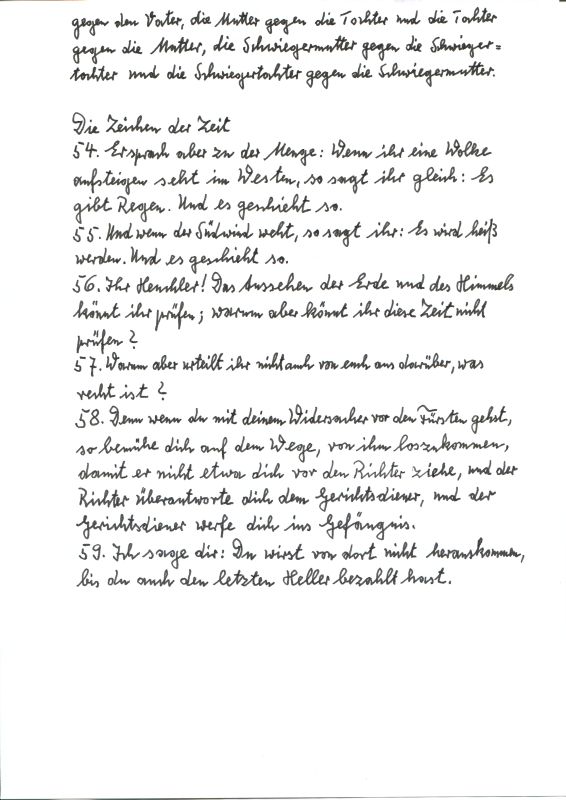 gegen den Vater, die Mutter gegen die Tochter und die Tochter
gegen die Mutter, die Schwiegermutter gegen die Schwieger=
tochter und die Schwiegertochter gegen die Schwiegermutter.
Die Zeichen der Zeit
54. Er sprach aber zu der Menge: Wenn ihr eine Wolke
aufsteigen seht im Westen, so sagt ihr gleich: Es
gibt Regen. Und es geschieht so.
55. Und wenn der Südwind weht, so sagt ihr: Es wird heiß
werden. Und es geschieht so.
56. Ihr Heuchler! Das Aussehen der Erde und des Himmels
könnt ihr prüfen; warum aber könnt ihr diese Zeit nicht
prüfen?
57. Warum aber urteilt ihr nicht auch von euch aus darüber, was
recht ist?
58. Denn wenn du mit deinem Widersacher vor den Fürsten gehst,
so bemühe dich auf dem Wege, von ihm loszukommen,
damit er nicht etwa dich vor den Richter ziehe, und der
Richter überantworte dich dem Gerichtsdiener, und der
Gerichtsdiener werfe dich ins Gefängnis.
59. Ich sage dir: Du wirst von dort nicht herauskommen,
bis du auch den letzten Heller bezahlt hast.